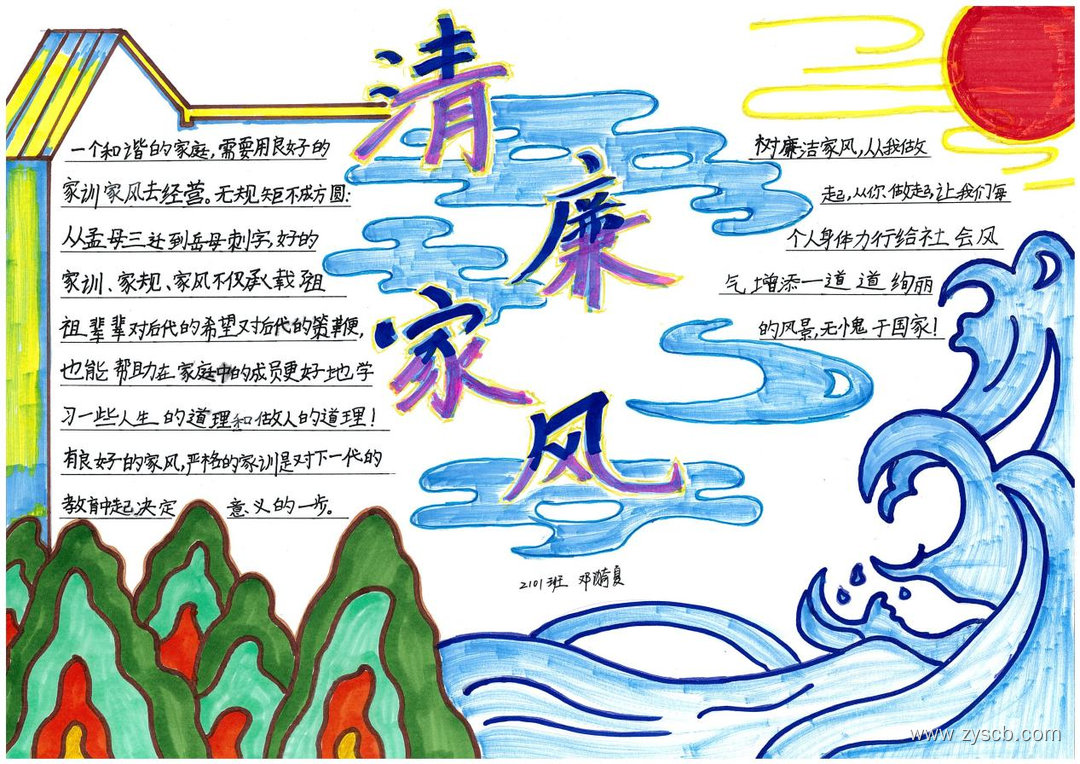 清廉家风
一个和谐的家庭，需要用良好的
家训家风去经营。无规矩不成方圆：
从孟母三迁到岳母刺字，好的
家训、家规、家风不仅承载祖
祖辈辈对后代的希望对后代的策鞭，
也能帮助在家庭中的成员更好地学
习一些人生的道理和做人的道理！
有良好的家风，严格的家训是对下一代的
教育中起决定意义的一步。
树廉洁家风，从我做
起，从你做起，让我们每
个人身体力行给社会风
气增添一道道绚丽
的风景，无愧于国家！
2101班 邓漪夏
www.zyscb.com